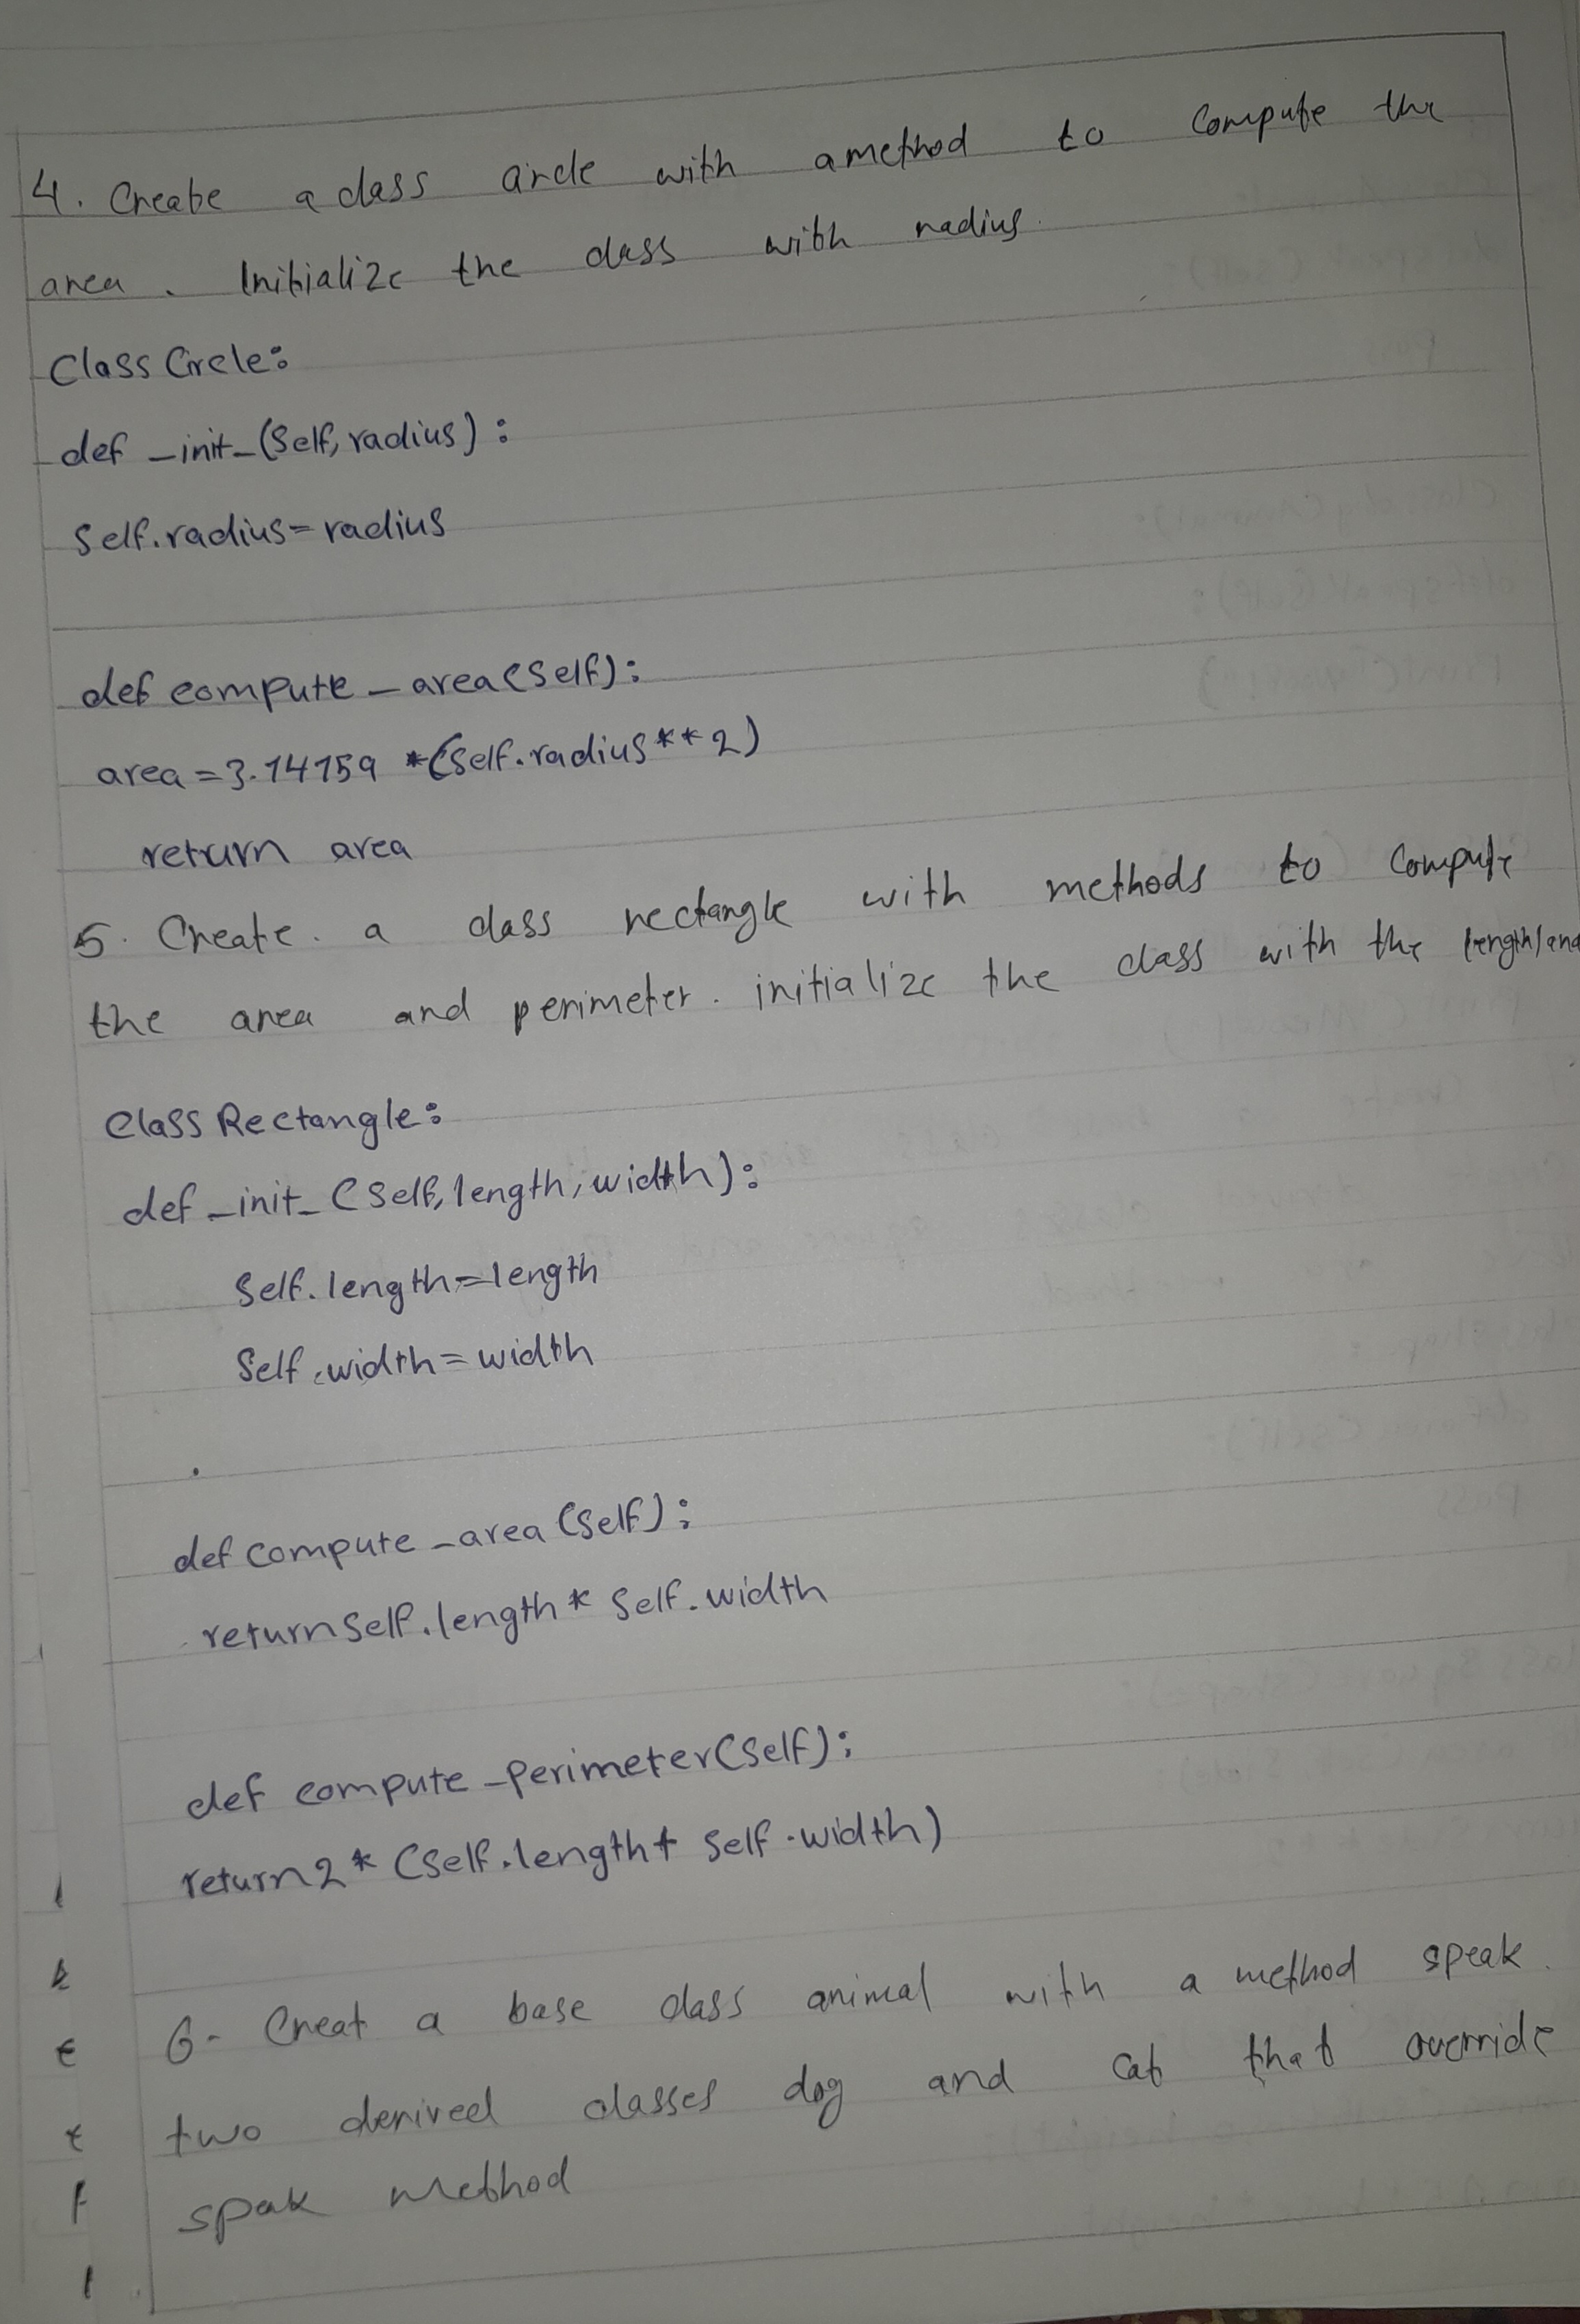 4. Create a class circle with a method to compute the
area. Initialize the class with radius.
Class Circle:
def _init_(Self, radius):
Self.radius=radius
def compute_area(Self):
area=3.14159 *(Self.radius**2)
return area
5. Create. a class rectangle with methods to compute
the area and perimeter. initialize the class with the length/and
Class Rectangle:
def _init_(Self, length, width):
Self.length=length
Self.width=width
def compute_area(Self):
return Self.length* Self.width
def compute_perimeter(Self):
return 2*(Self.length+ Self.width)
6- Creat a base class animal with a method speak.
two derived classes dog and cat that override
spak method